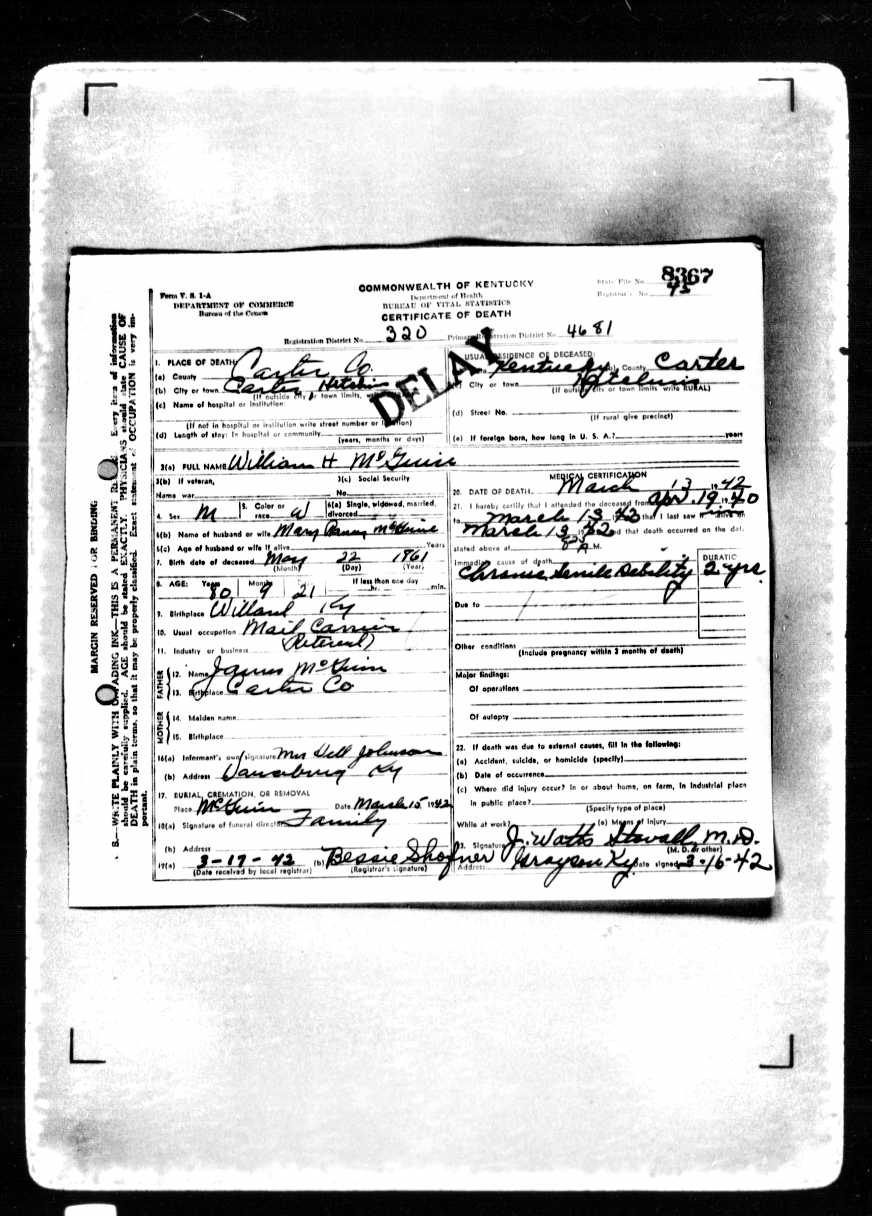 Form V. S. 1-A
DEPARTMENT OF COMMERCE
Bureau of the Census
COMMONWEALTH OF KENTUCKY
Department of Health
BUREAU OF VITAL STATISTICS
CERTIFICATE OF DEATH
State File No. 8367
Registrar's No. 45
Registration District No. 320
Primary Registration District No. 4681
DELAY
MARGIN RESERVED FOR BINDING
1. PLACE OF DEATH
(a) County Carter Co.
(b) City or town Carter,
(If outside city or town limits,
(c) Name of hospital or institution:
(If not in hospital or institution write street number or location)
(d) Length of stay: In hospital or community
(years, months or days)
USUAL RESIDENCE OF DECEASED:
Kentucky County Carter
City or town
(If outside city or town limits write RURAL)
(d) Street No.
(If rural give precinct)
(e) If foreign born, how long in U. S. A.? years
3(a) FULL NAME William H McGuire
3(b) If veteran, 3(c) Social Security
Name war No.
4. Sex M 5. Color or race W 6(a) Single, widowed, married, divorced
6(b) Name of husband or wife Mary McGuire
6(c) Age of husband or wife if alive Years
7. Birth date of deceased May 22 1861
(Month) (Day) (Year)
8. AGE: Years Months Days If less than one day
80 9 21 hr. min.
9. Birthplace Willard Ky
10. Usual occupation Mail Carrier
11. Industry or business (Retired)
FATHER
12. Name James McGuire
13. Birthplace Carter Co
MOTHER
14. Maiden name
15. Birthplace
16(a) Informant's own signature Mrs Dell Johnson
(b) Address Vanceburg Ky
17. BURIAL, CREMATION, OR REMOVAL
Place McGuire Date March 15 1942
18(a) Signature of funeral director Family
(b) Address
19(a) 3-17-42 (b) Bessie Shofner
(Date received by local registrar) (Registrar's signature)
MEDICAL CERTIFICATION
20. DATE OF DEATH March 13 1942
21. I hereby certify that I attended the deceased from Apr. 19 1940
to March 13 that I last saw alive on
March 13 and that death occurred on the date
stated above at A M.
Immediate cause of death DURATION
Chronic Senile Debility 2 yrs
Due to
Other conditions
(Include pregnancy within 3 months of death)
Major findings:
Of operations
Of autopsy
22. If death was due to external causes, fill in the following:
(a) Accident, suicide, or homicide (specify)
(b) Date of occurrence
(c) Where did injury occur? In or about home, on farm, in industrial place
in public place?
(Specify type of place)
While at work? (e) Means of Injury
23. Signature J. Watts Stovall, M.D.
(M. D. or other)
Address Grayson Ky. Date signed 3-16-42